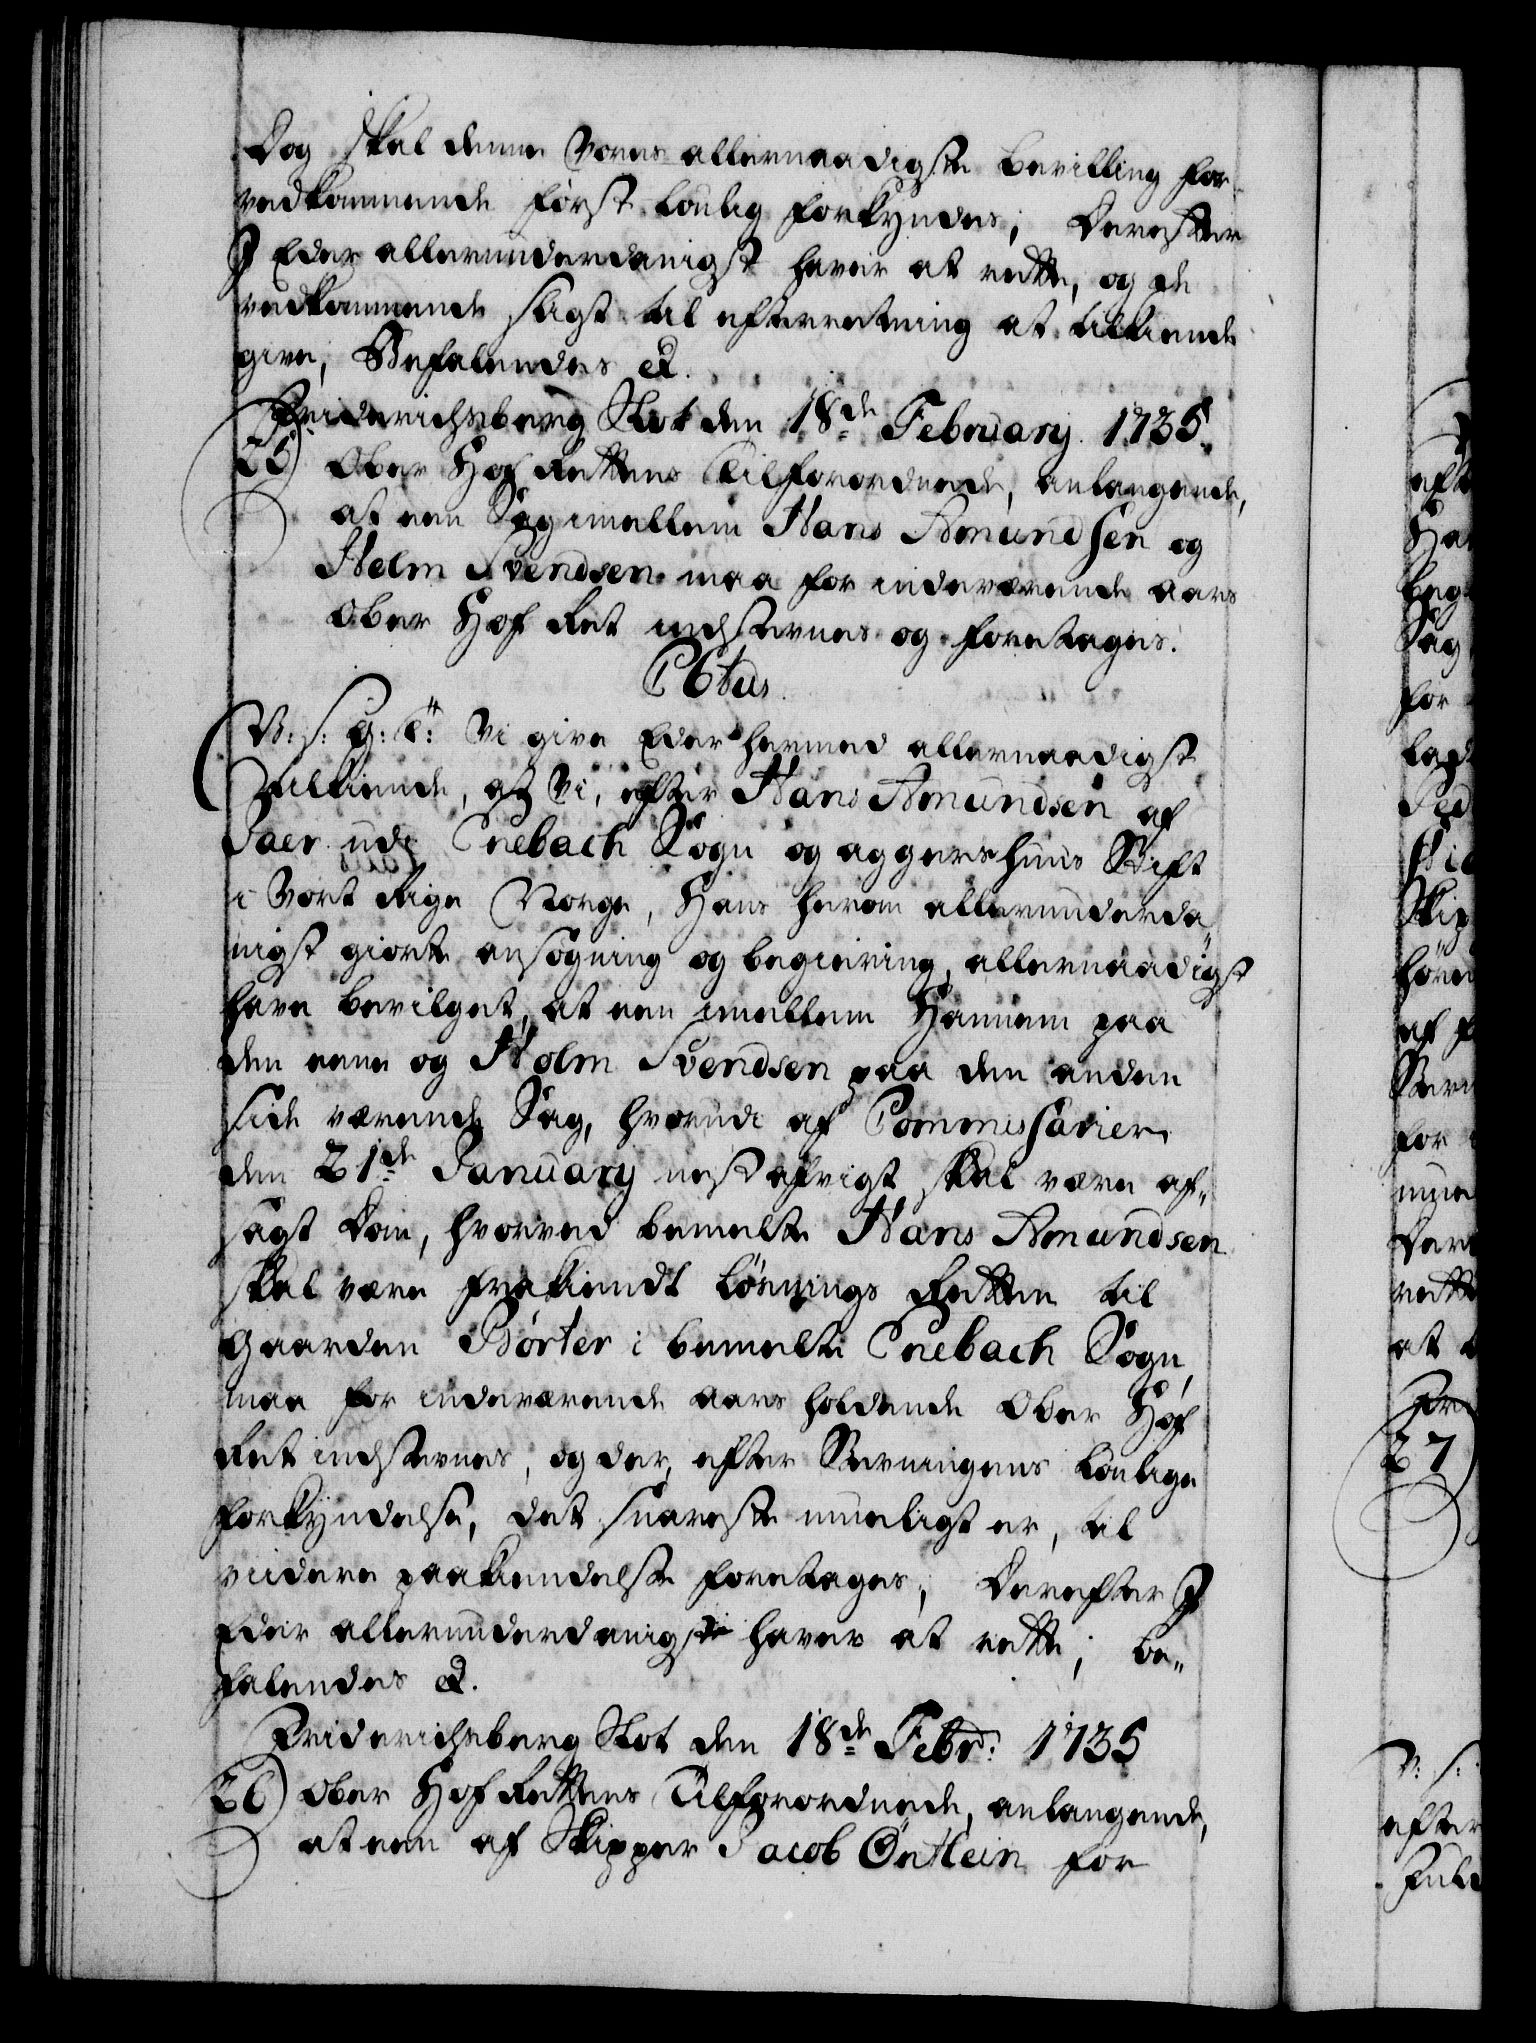 Dog skal denne Vores allernaadigste bevilling for
vedkommende først lovlig forkyndes; Derefter
I Eder allerunderdanigst haver at rette, og de
vedkommende sligt til efterretning at tilkiende
give, Befalendes &.
Friderichsberg Slot den 18de February 1735.
25) Ober Hof Rettens Tilforordnede, anlangende,
at een Sag imellem Hans Amundsen og
Holm Svendsen maa for indeværende aars
Ober Hof Ret indstevnes og foretages.
C6tus
V: S: G: T: Vi give Eder hermed allernaadigst
Tilkiende, at Vi, efter Hans Amundsen af
Jaer udi Enebach Sogn og aggershuus Stift
i Vort Rige Norge, Hans herom allerunderda
nigst giorte ansøgning og begiering, allernaadigst
have bevilget, at een imellem Hannem paa
den eene og Holm Svendsen paa den anden
side værende Sag, hvorudi af Commissarier
den 21de January nest afvigt skal være af"
sagt dom, hvorved bemelte Hans Amundsen
skal være frakiendt løsnings Retten til
Gaarden Børter i bemelte Enebach Sogn,
maa for indeværende aars holdende Ober Hof
Ret indstevnes, og der, efter Stevningens lovlige
forkyndelse, det snareste mueligt er, til
viidere paakiendelse foretages; Derefter I
Eder allerunderdanigst haver at rette; be"
falendes &.
Friderichsberg Slot den 18de Febr: 1735
26) Ober Hof Rettens Tilforordnede, anlangende,
at een af Skipper Jacob for